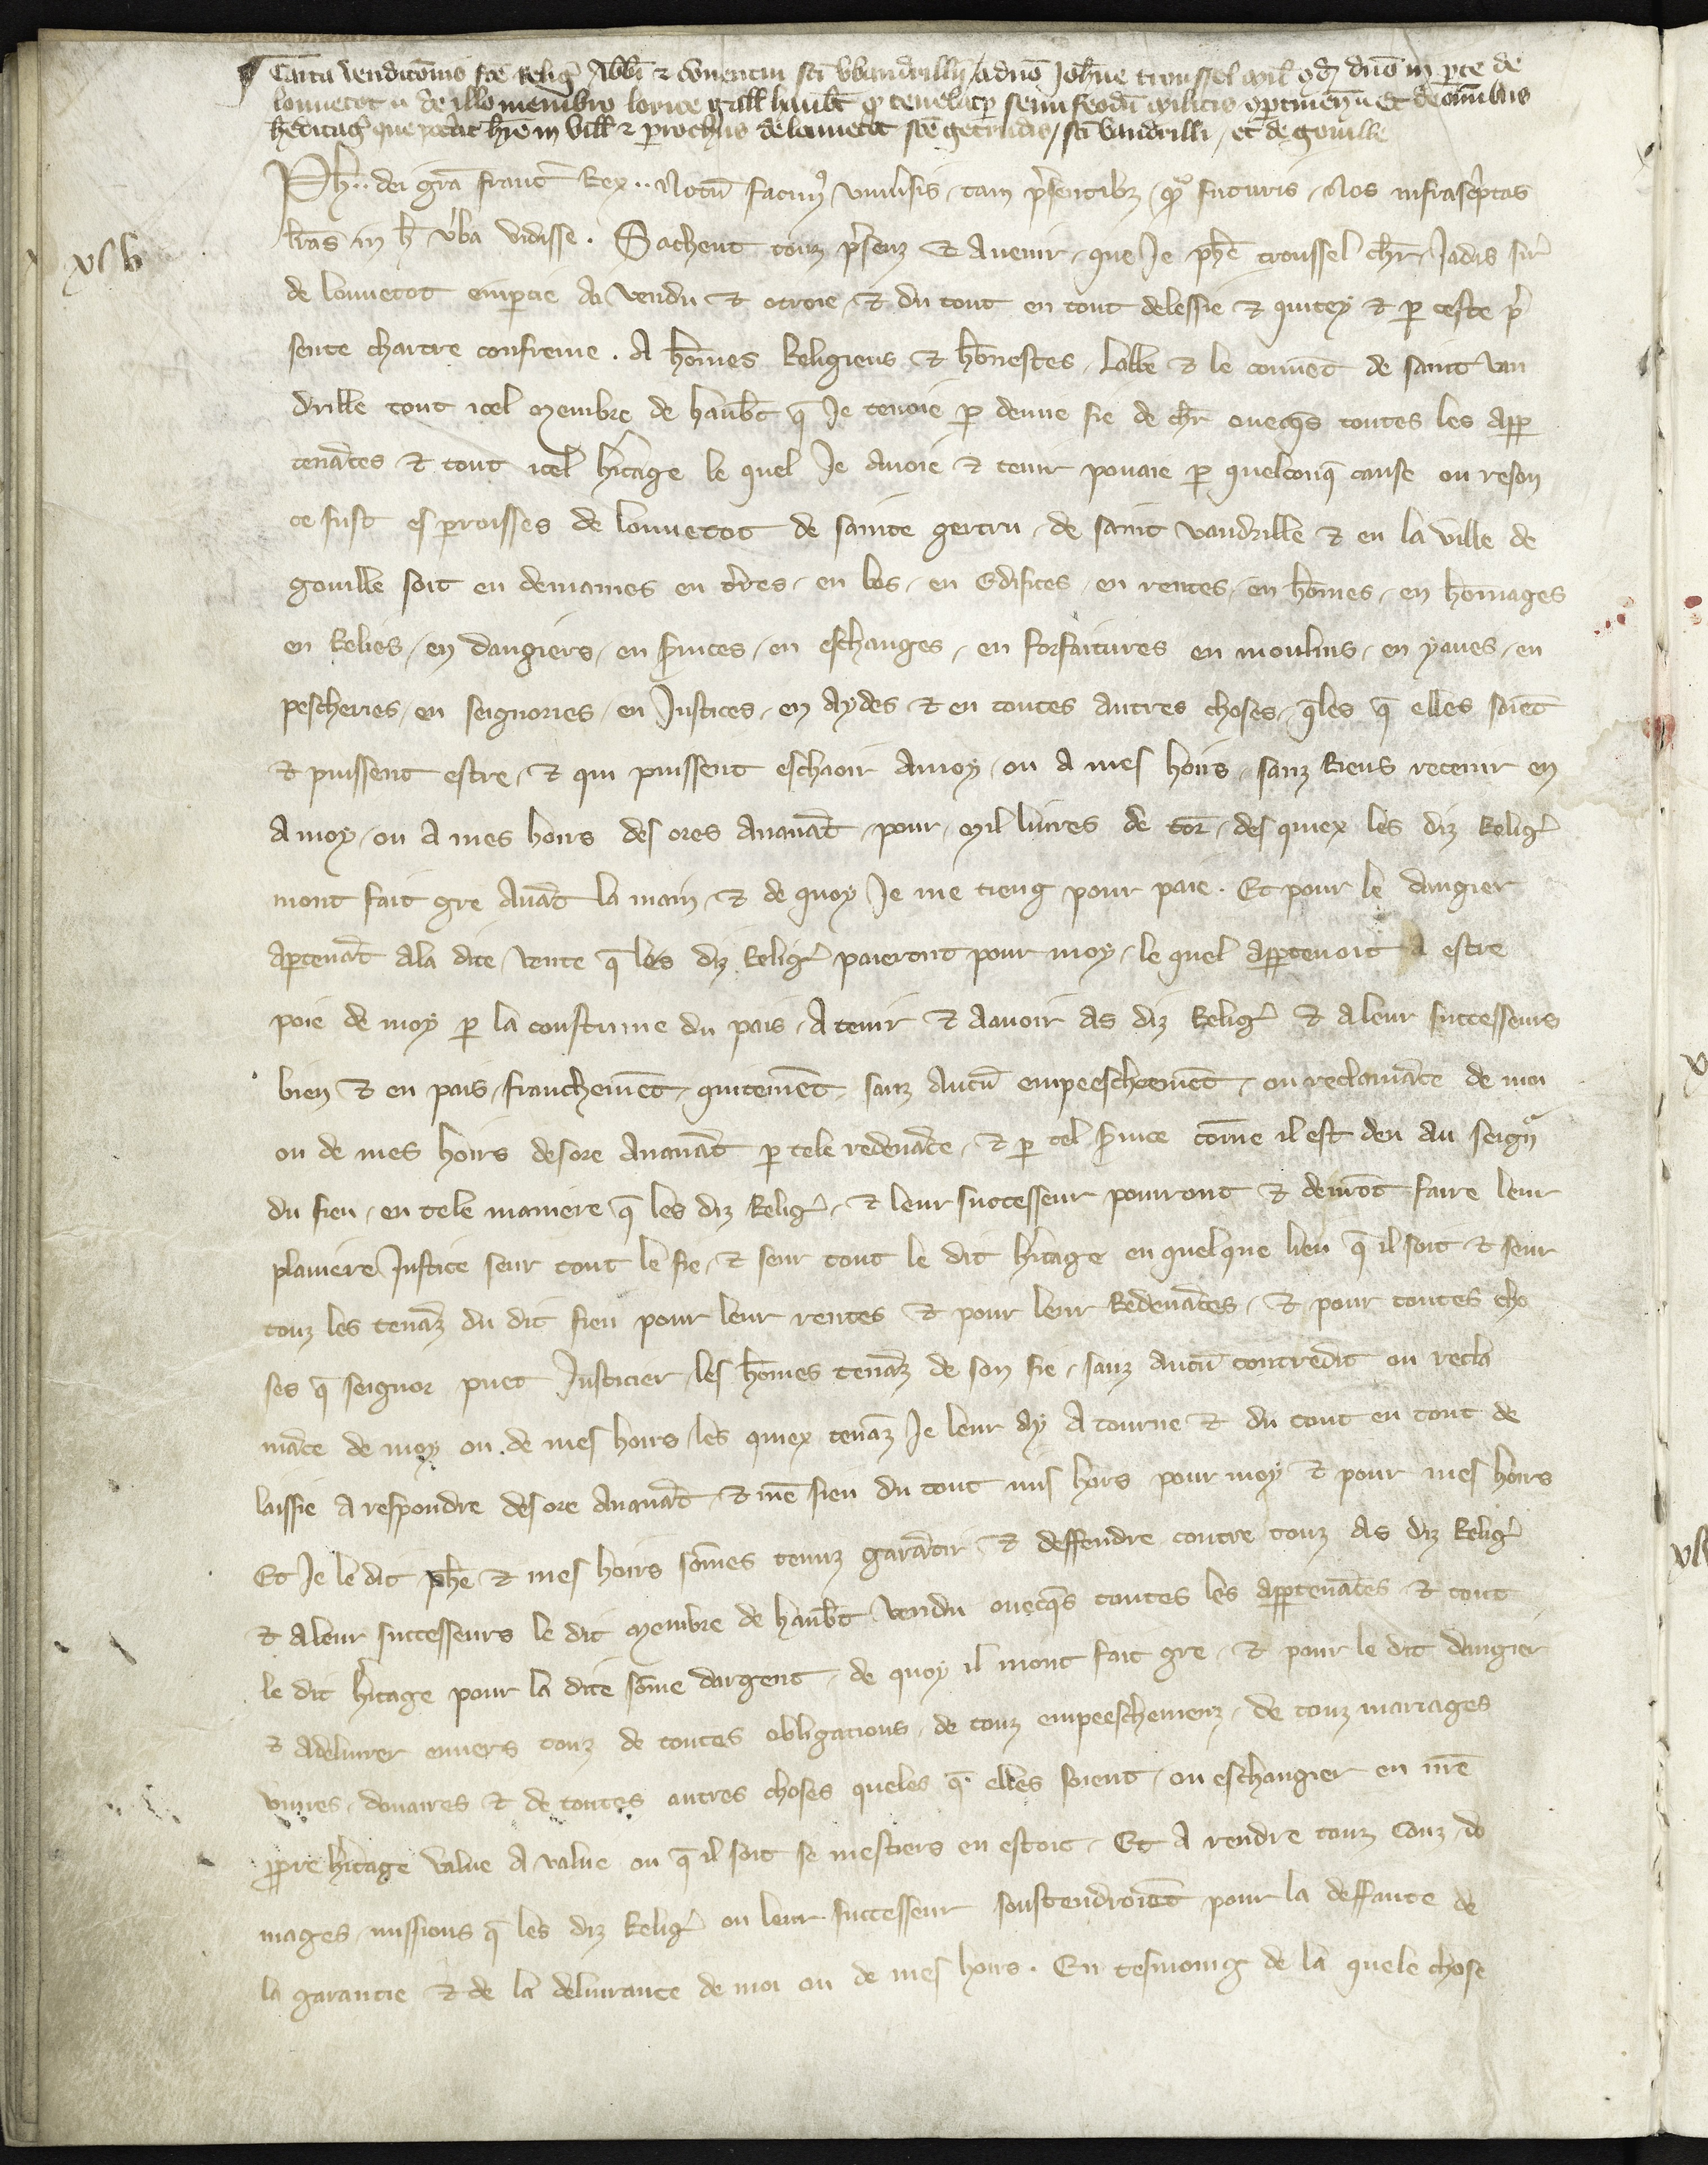 Carta venditōnis fcē Religꝰ Abbi ⁊ Conventui scī Wandrillii a dnō Joħne troussel mil̄ qd̄ dnō in ꝑte de
louvetot de illo membro lorice gall haub̄t qd̄ tenebat ꝑ semi feodū militis et de omnibus
heditag̉ que hr̄e in vill ⁊ ꝑrochiis de louvetot scē Gertrudis / scī Vandrilli / et de gouille
xlv
Ph̄ .. dei gr̄a franc̉ Rex .. Notū facimꝰ vniuˀsis / tam pˀsentibꝫ / qͣ futuris / Nos infrascˀptas
lr̄as in h̄ vˀba vidisse . Sachent touz pˀsenz et Auenir / que Je ph̄e troussel chr̄ / Jadis sir̉
de louuetot enꝑtie Ai vendu ⁊ otroie / ⁊ du tout en tout delessie ⁊ quitey ⁊ ꝑ ceste pˀ
sente chartre conferme . A hōmes Religieus ⁊ hōnestes / labbe ⁊ le couuēt de saint van
drille tout icel Membre de haub̄t q̄ Je tenoie ꝑ demie fie de chr̄ ouecqˀs toutes les app
tenāces ⁊ tout icel hˀitage le quel Je auoie ⁊ tenir pouaie ꝑ quelconq̄ cause ou reson
ce fust es ꝑroisses de louuetot de sainte gertru / de saint vandrille ⁊ en la ville de
gouille soit en demaines en tˀres / en bos / en Edifices / en rentes / en hōmes / en hōmages
en Reliés / en dangiers / en sˀuices / en eschanges / en forfaitures en moulins / en yaues / en
pescheries / en seignories / en Justices / en Aydes ⁊ en toutes autres choses / q̄les q̄ elles soiēt
⁊ puissent estre / ⁊ qui puissent escheoir A moy / ou A mes hoirs / sanz Riens retenir en
A moy / ou A mes hoirs des ores Auauāt / pour / Mil liures de tor̄ / des quiex les diz Religˀ
mont fait gre Auāt la main / ⁊ de quoy Je me tieng pour paie . Et pour le dangier
aꝑtenāt A la dite / vente q̄ les diz Religˀ paieront pour moy / le quel apptenoit A estre
poie de moy ꝑ la coustume du pais / A tenir ⁊ A auoir As diz Religˀ ⁊ A leur successeurs
bien ⁊ en pais / franchemēt / quitemēt / sanz aucū empeeschemēt / ou reclamāce de moi
ou de mes hoirs desore Auauāt ꝑ tele redeuāce / ⁊ ꝑ tel sˀuice cōme il est deu au seignͬ
du fieu / en tele maniere q̄ les diz Religˀ / ⁊ leur successeur pourront ⁊ deurōt faire leur
planiere Justice seur tout le fie / ⁊ seur tout le dit hˀitage en quelque lieu q̄ il soit ⁊ seur
touz les tenāz du dit fieu pour leur rentes ⁊ pour leur Redeuāces / ⁊ pour toutes cho
ses q̄ seignor puet Justicier / les hōmes tenāz de son fie / sanz aucū contredit ou recla
māce de moy ou de mes hoirs / les quiex tenāz Je leur ay A tourne ⁊ du tout en tout de
laissie A respondre desore Auauāt / ⁊ mē sieu du tout mis hors pour moy ⁊ pour mes hoirs
Et Je le dit ph̄e ⁊ mes hoirs sōmes tenuz garātir ⁊ deffendre contre touz As diz Religˀ
⁊ A leur successeurs le dit Membre de haub̄t vendu ouecqˀs toutes les apptenāces ⁊ tout
le dit hˀitage pour la dite sōme dargent / de quoy il mont fait gre / ⁊ pour le dit dangier
⁊ Adeliurer enuers touz de toutes obligations / de touz empeeschemenz / de touz mariages
viures / douaires ⁊ de toutes autres choses queles q̄ elles soient / ou eschangier en mē
ꝓpre hˀitage value A value ou q̄ il soit se mestiers en estoit / Et A rendre touz couz / do
mages / missions q̄ les diz Religˀ ou leur successeur soustendroiēt pour la deffaute de
la garantie ⁊ de la deliurance de moi ou de mes hoirs . En tesmoing de la quele chose